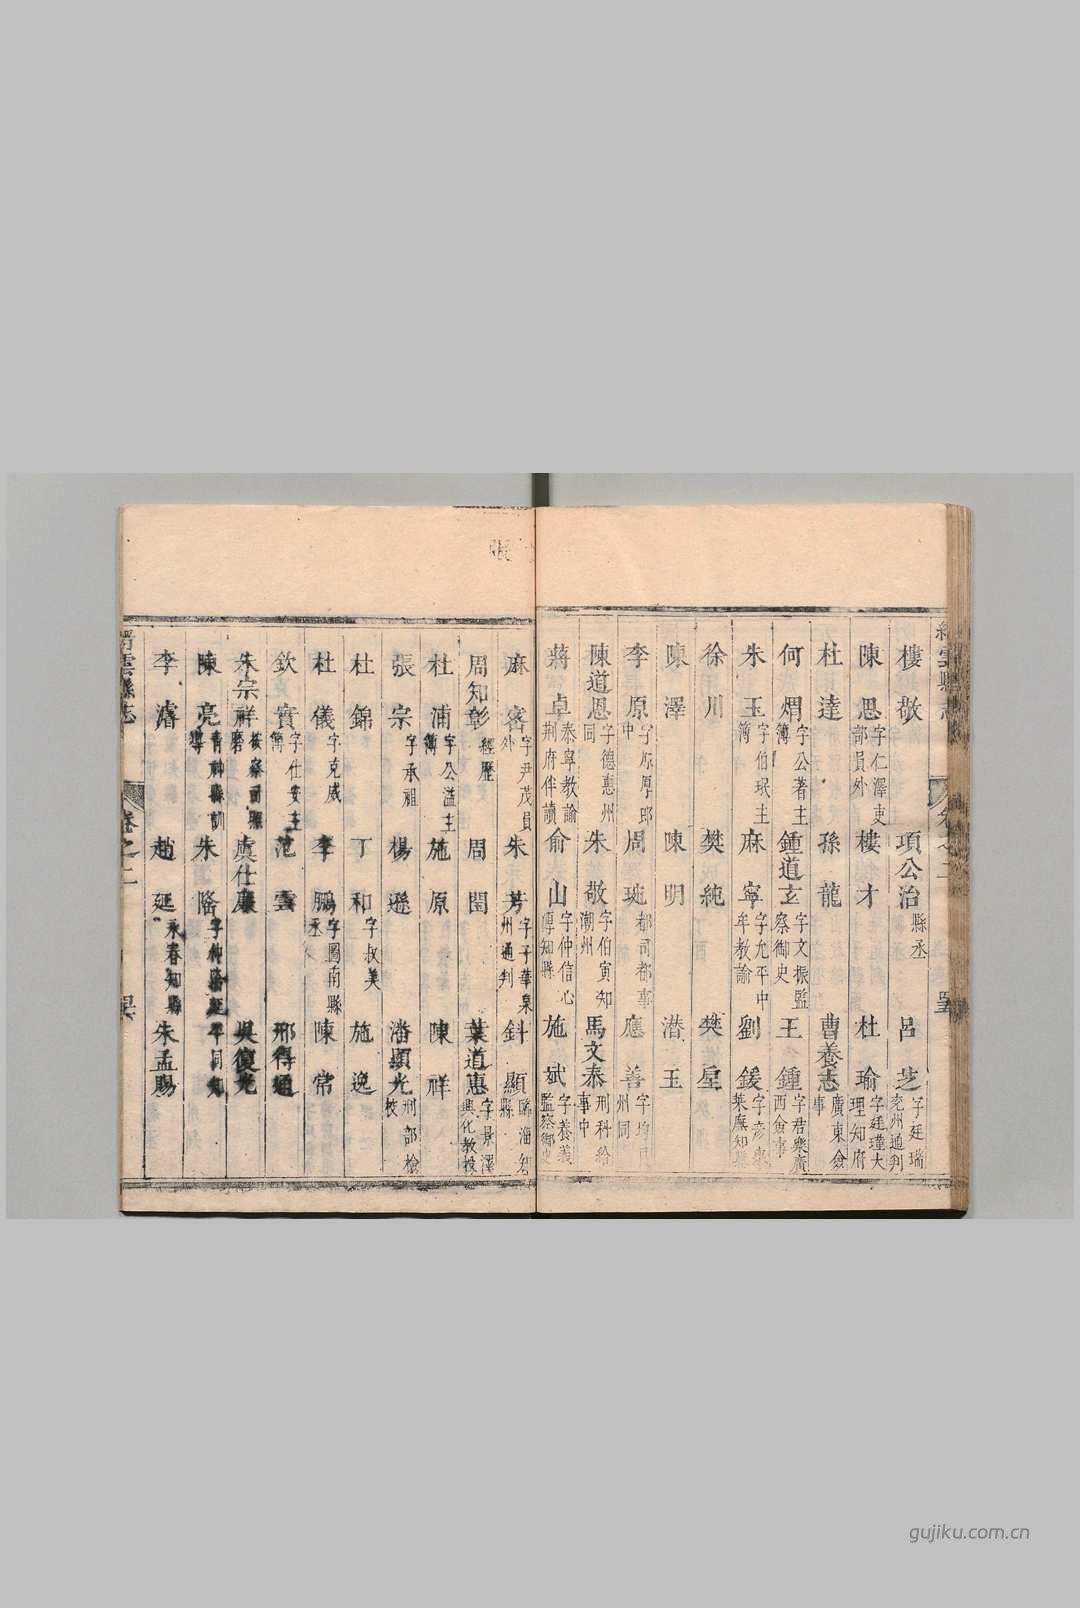 縉雲縣志 卷之二
樓敬 項公治 縣丞 呂芝 字廷瑞兖州通判
陳思 字仁澤吏部員外 樓才 杜瑜 字廷瑾大理知府
杜達 孫龍 曹養志 廣東僉事
何焆 字公著主簿 鍾道玄 字文振監察御史 王鍾 字君樂廣西僉事
朱玉 字伯珉主簿 麻寧 字允平中牟教諭 劉鍰 字彥 萊蕪知縣
徐川 樊純 樊星
陳澤 陳明 潜玉
李原 字原厚郎中 周珽 都司都事 應善
陳道恩 字德惠州同 朱敬 字伯寅知潮州 馬文泰 刑科給事中
蔣卓 泰寧教諭荆府伴讀 俞山 字仲信心傅知縣 施斌 字養義監察御史
麻容 字尹茂員外 朱芳 字子華泉州通判 斜顯 臨海知縣
周知彰 經歷 周閏 葉道惠 字景澤興化教授
杜浦 字公溢主簿 施原 陳祥
張宗 字承祖 楊遜 潘顯光 刑部檢校
杜錦 丁和 字叔美 施逸
杜儀 字克威 李鵬 字圖南縣丞 陳常
欽實 字仕安主簿 范雲 邢得通
朱宗祥 按察司照磨 虞仕康 吳復光
陳亮 青神縣訓導 朱隆
李濬 趙廷 永春知縣 朱孟賜
縉雲縣志 卷之二
gujiku.com.cn